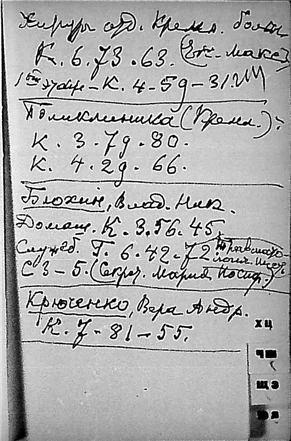 Хирург. отд. Кремл. больн.
К. 6.73.63.
К. 4-59-31
Поликлиника (Кремл.):
К. 3.79.80.
К. 4.29.66.
Блохин, Влад. Ник.
Домаш. К. 3.56.45
Служеб. Г. 6.42.72
С 3-5. (Секр. Мария Иосиф.)
Крюченко, Вера Андр.
К. 7-81-55.
ХЦ
ЧШ
ЩЭ
ЮЯ